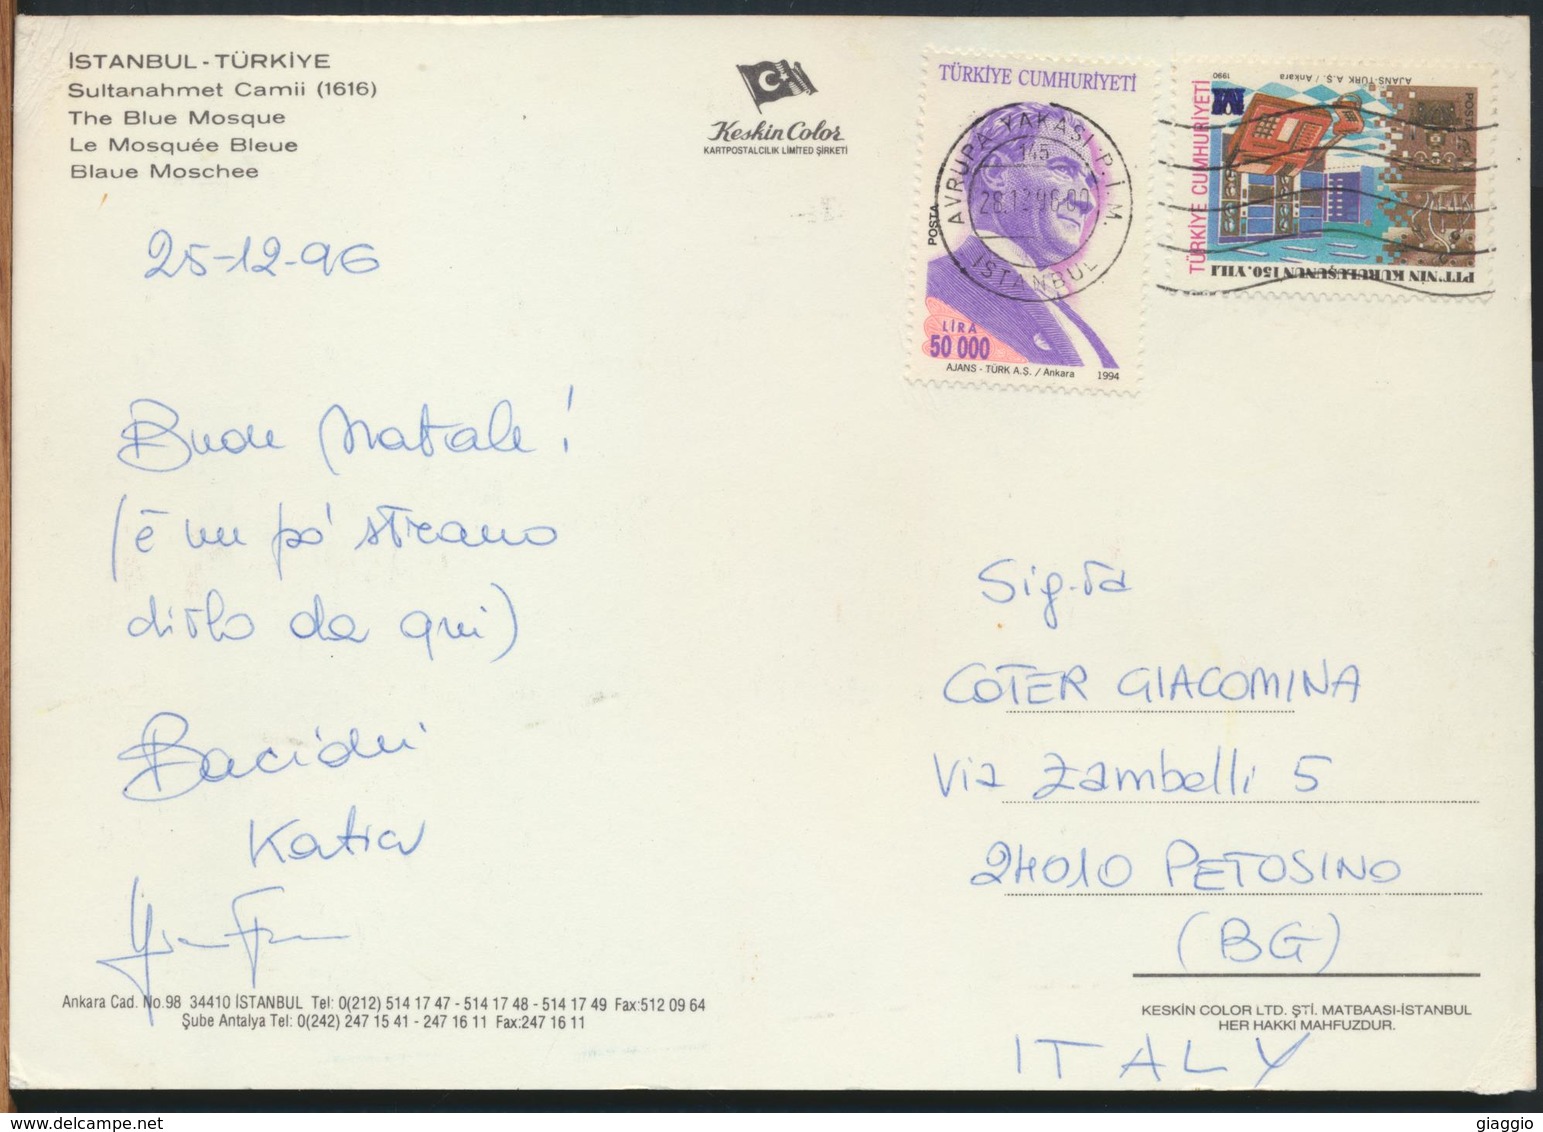 İSTANBUL - TÜRKİYE
Sultanahmet Camii (1616)
The Blue Mosque
Le Mosquée Bleue
Blaue Moschee
Keskin Color
KARTPOSTALCILIK LIMITED ŞİRKETİ
TÜRKİYE CUMHURİYETİ
POSTA
LİRA
50 000
AJANS - TÜRK A.Ş. / Ankara 1994
AVRUPA YAKASI P.İ.M.
145
İSTANBUL
TÜRKİYE CUMHURİYETİ
PTT'NİN KURULUŞUNUN 150. YILI
POSTA
AJANS-TÜRK A.Ş. / Ankara 1990
25-12-96
Buon Natale!
(è un pò strano
dirlo da qui)
Bacioni
Katia
Sig.ra
COTER GIACOMINA
Via Zambelli 5
24010 PETOSINO
(BG)
ITALY
Ankara Cad. No.98 34410 İSTANBUL Tel: 0(212) 514 17 47 - 514 17 48 - 514 17 49 Fax:512 09 64
Şube Antalya Tel: 0(242) 247 15 41 - 247 16 11 Fax:247 16 11
KESKİN COLOR LTD. ŞTİ. MATBAASI-İSTANBUL
HER HAKKI MAHFUZDUR.
giaggio